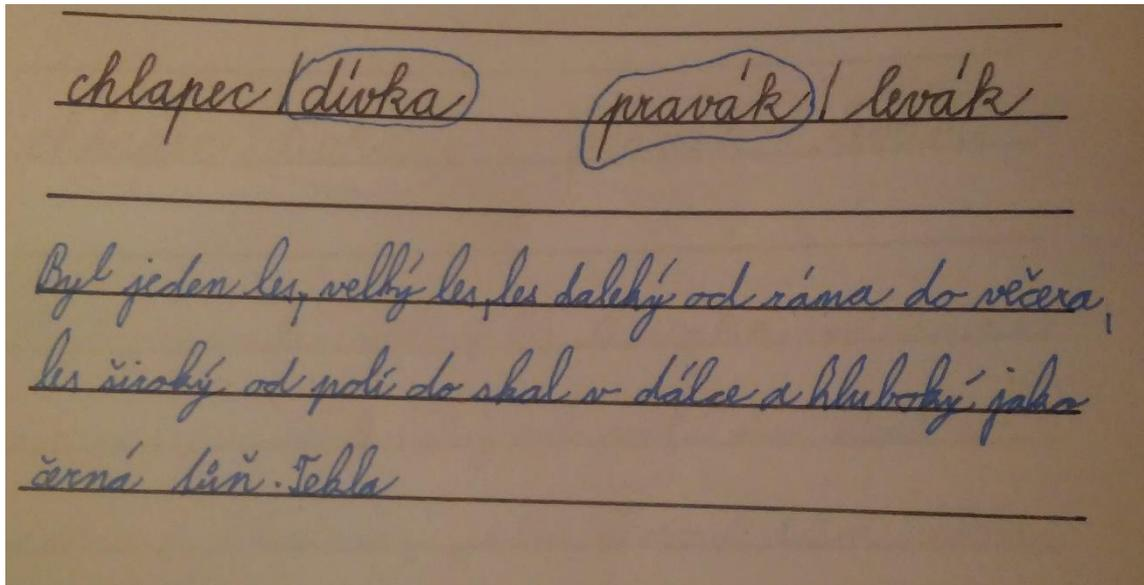 chlapec / dívka pravák / levák
Byl jeden les, velký les, les daleký od rána do večera,
les široký od polí do skal v dálce a hluboký jako
černá tůň. Tekla